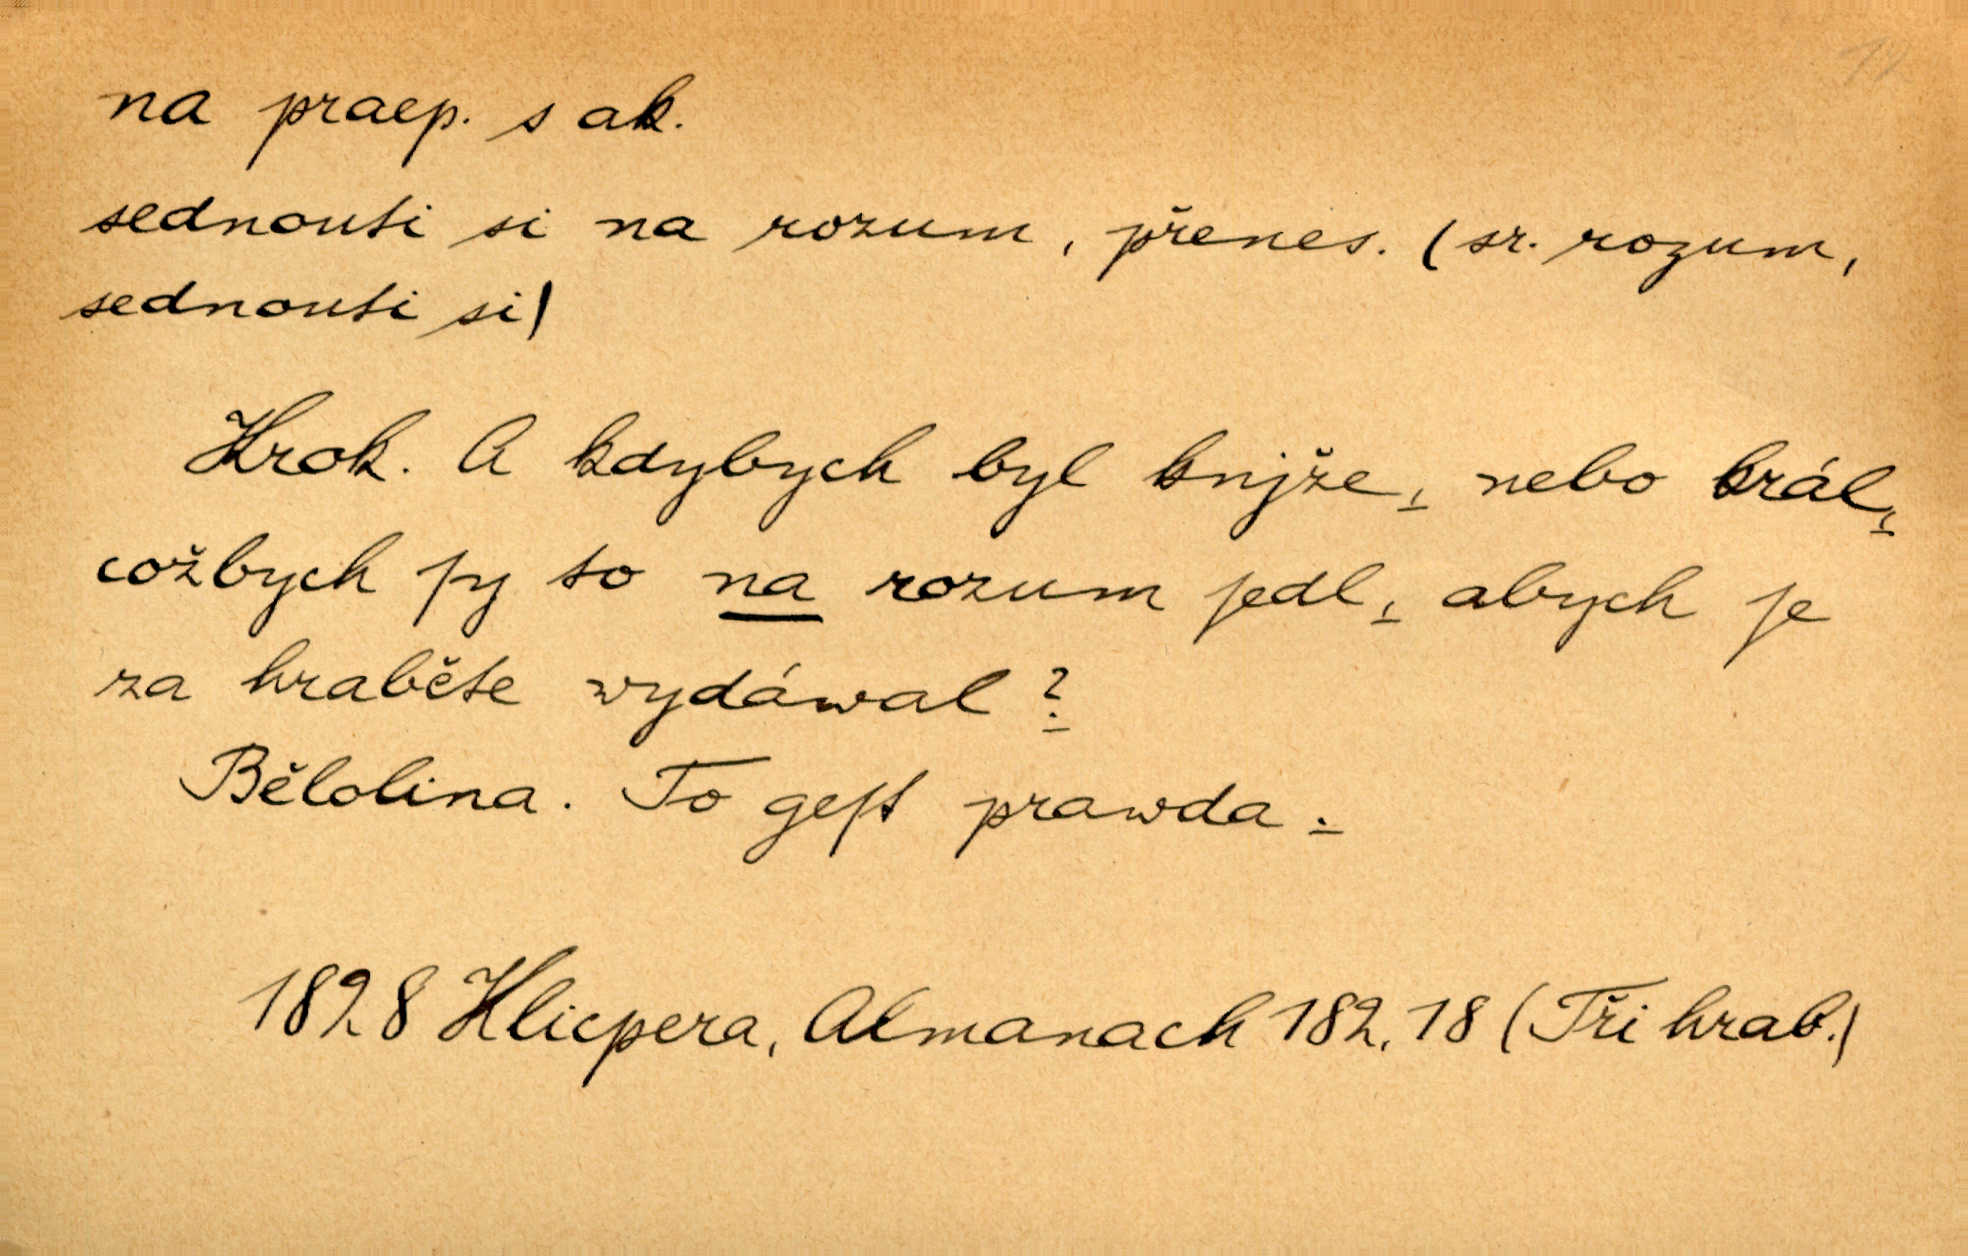 na praep. s ak.
sednouti si na rozum, přenes. (sr. rozum,
sednouti si)
Krok. A kdybych byl knjže, nebo král,
cožbych ſy to na rozum ſedl, abych ſe
za hraběte wydáwal?
Bělolina. To geſt prawda.
1828 Klicpera, Almanach 182, 18 (Tři hrab.)